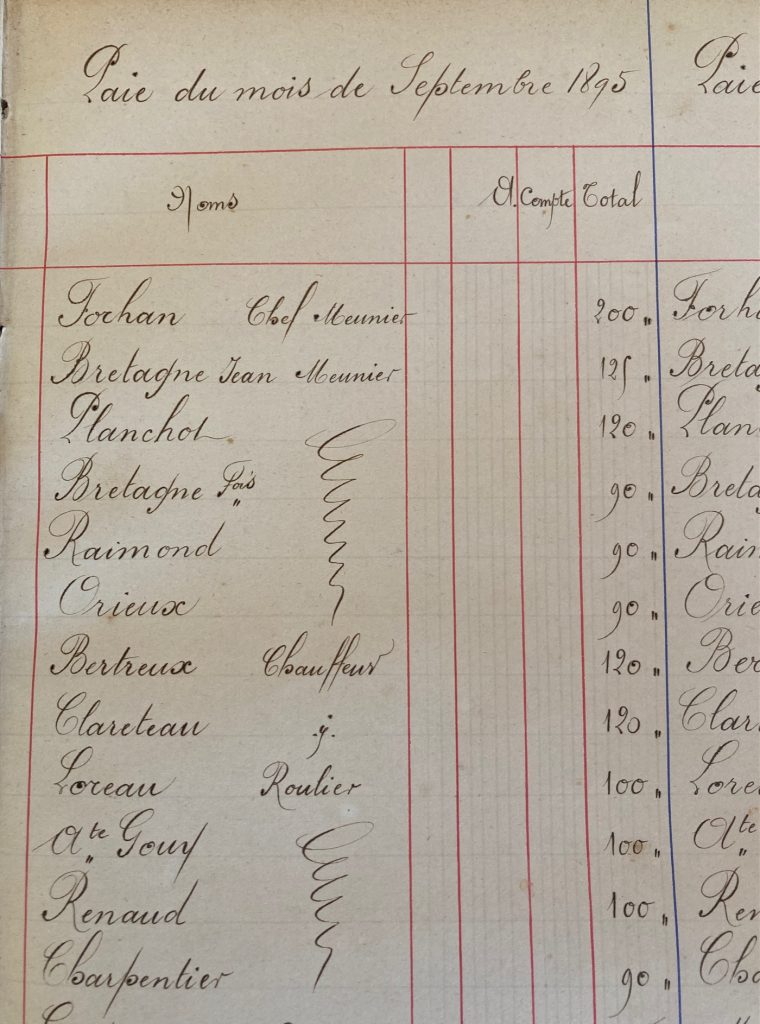 Paie du mois de Septembre 1895
Paie
Noms A. Compte Total
Forhan Chef Meunier 200 "
Bretagne Jean Meunier 125 "
Planchot 120 "
Bretagne Fois 90 "
Raimond 90 "
Orieux 90 "
Bertreux Chauffeur 120 "
Clareteau 120 "
Loreau Roulier 100 "
Ate Gouy 100 "
Renaud 100 "
Charpentier 90 "
Forh
Breta
Plan
Breta
Rain
Orie
Ber
Clar
Lore
Ate
Ren
Cha